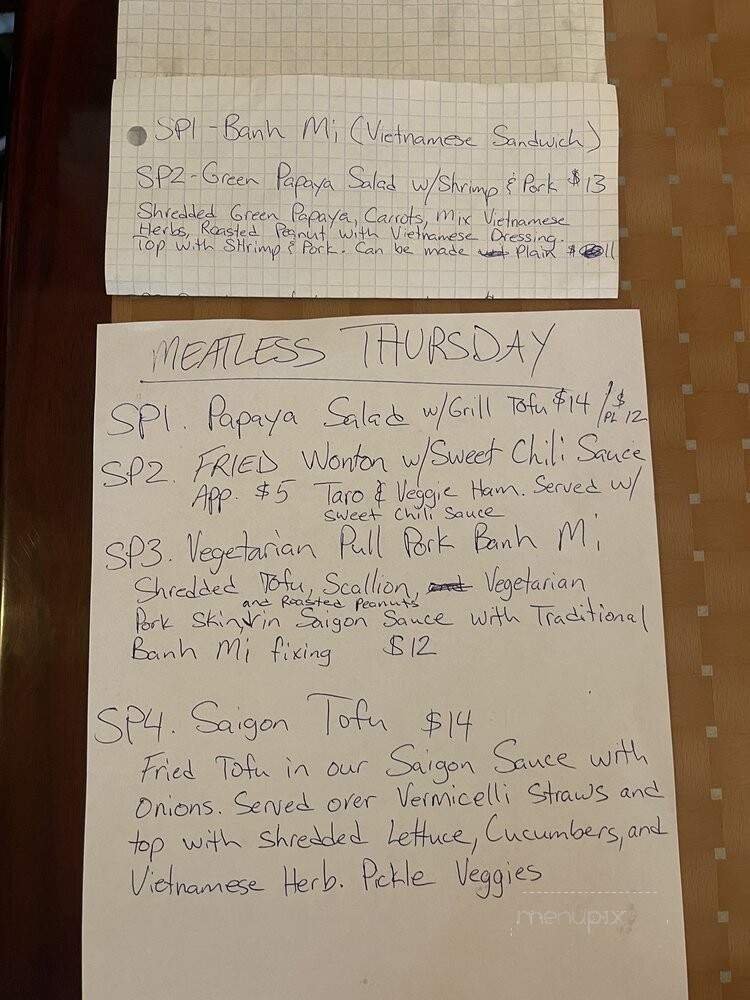 SP1 - Banh Mi (Vietnamese Sandwich)
SP2 - Green Papaya Salad w/Shrimp & Pork $13
Shredded Green Papaya, Carrots, Mix Vietnamese
Herbs, Roasted Peanut with Vietnamese Dressing.
Top with Shrimp & Pork. Can be made Plain $11
MEATLESS THURSDAY
SP1. Papaya Salad w/Grill Tofu $14 / PL $12
SP2. FRIED Wonton w/Sweet Chili Sauce
App. $5 Taro & Veggie Ham. Served w/
sweet chili sauce
SP3. Vegetarian Pull Pork Banh Mi
Shredded Tofu, Scallion, Vegetarian
and Roasted Peanuts
Pork Skin, in Saigon Sauce with Traditional
Banh Mi fixing $12
SP4. Saigon Tofu $14
Fried Tofu in our Saigon Sauce with
Onions. Served over Vermicelli Straws and
top with shredded Lettuce, Cucumbers, and
Vietnamese Herb. Pickle Veggies
menupix